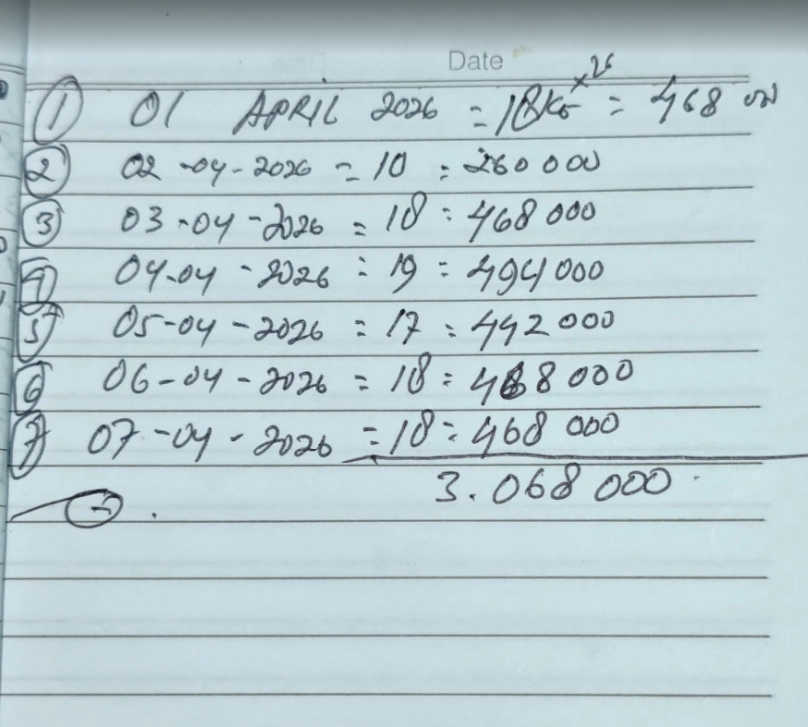 Date
① 01 APRIL 2026 = 18KG x 26 = 468 000
② 02-04-2026 = 10 = 260 000
③ 03-04-2026 = 18 = 468 000
④ 04-04-2026 = 19 = 494 000
⑤ 05-04-2026 = 17 = 442 000
⑥ 06-04-2026 = 18 = 468 000
⑦ 07-04-2026 = 18 = 468 000
3.068 000